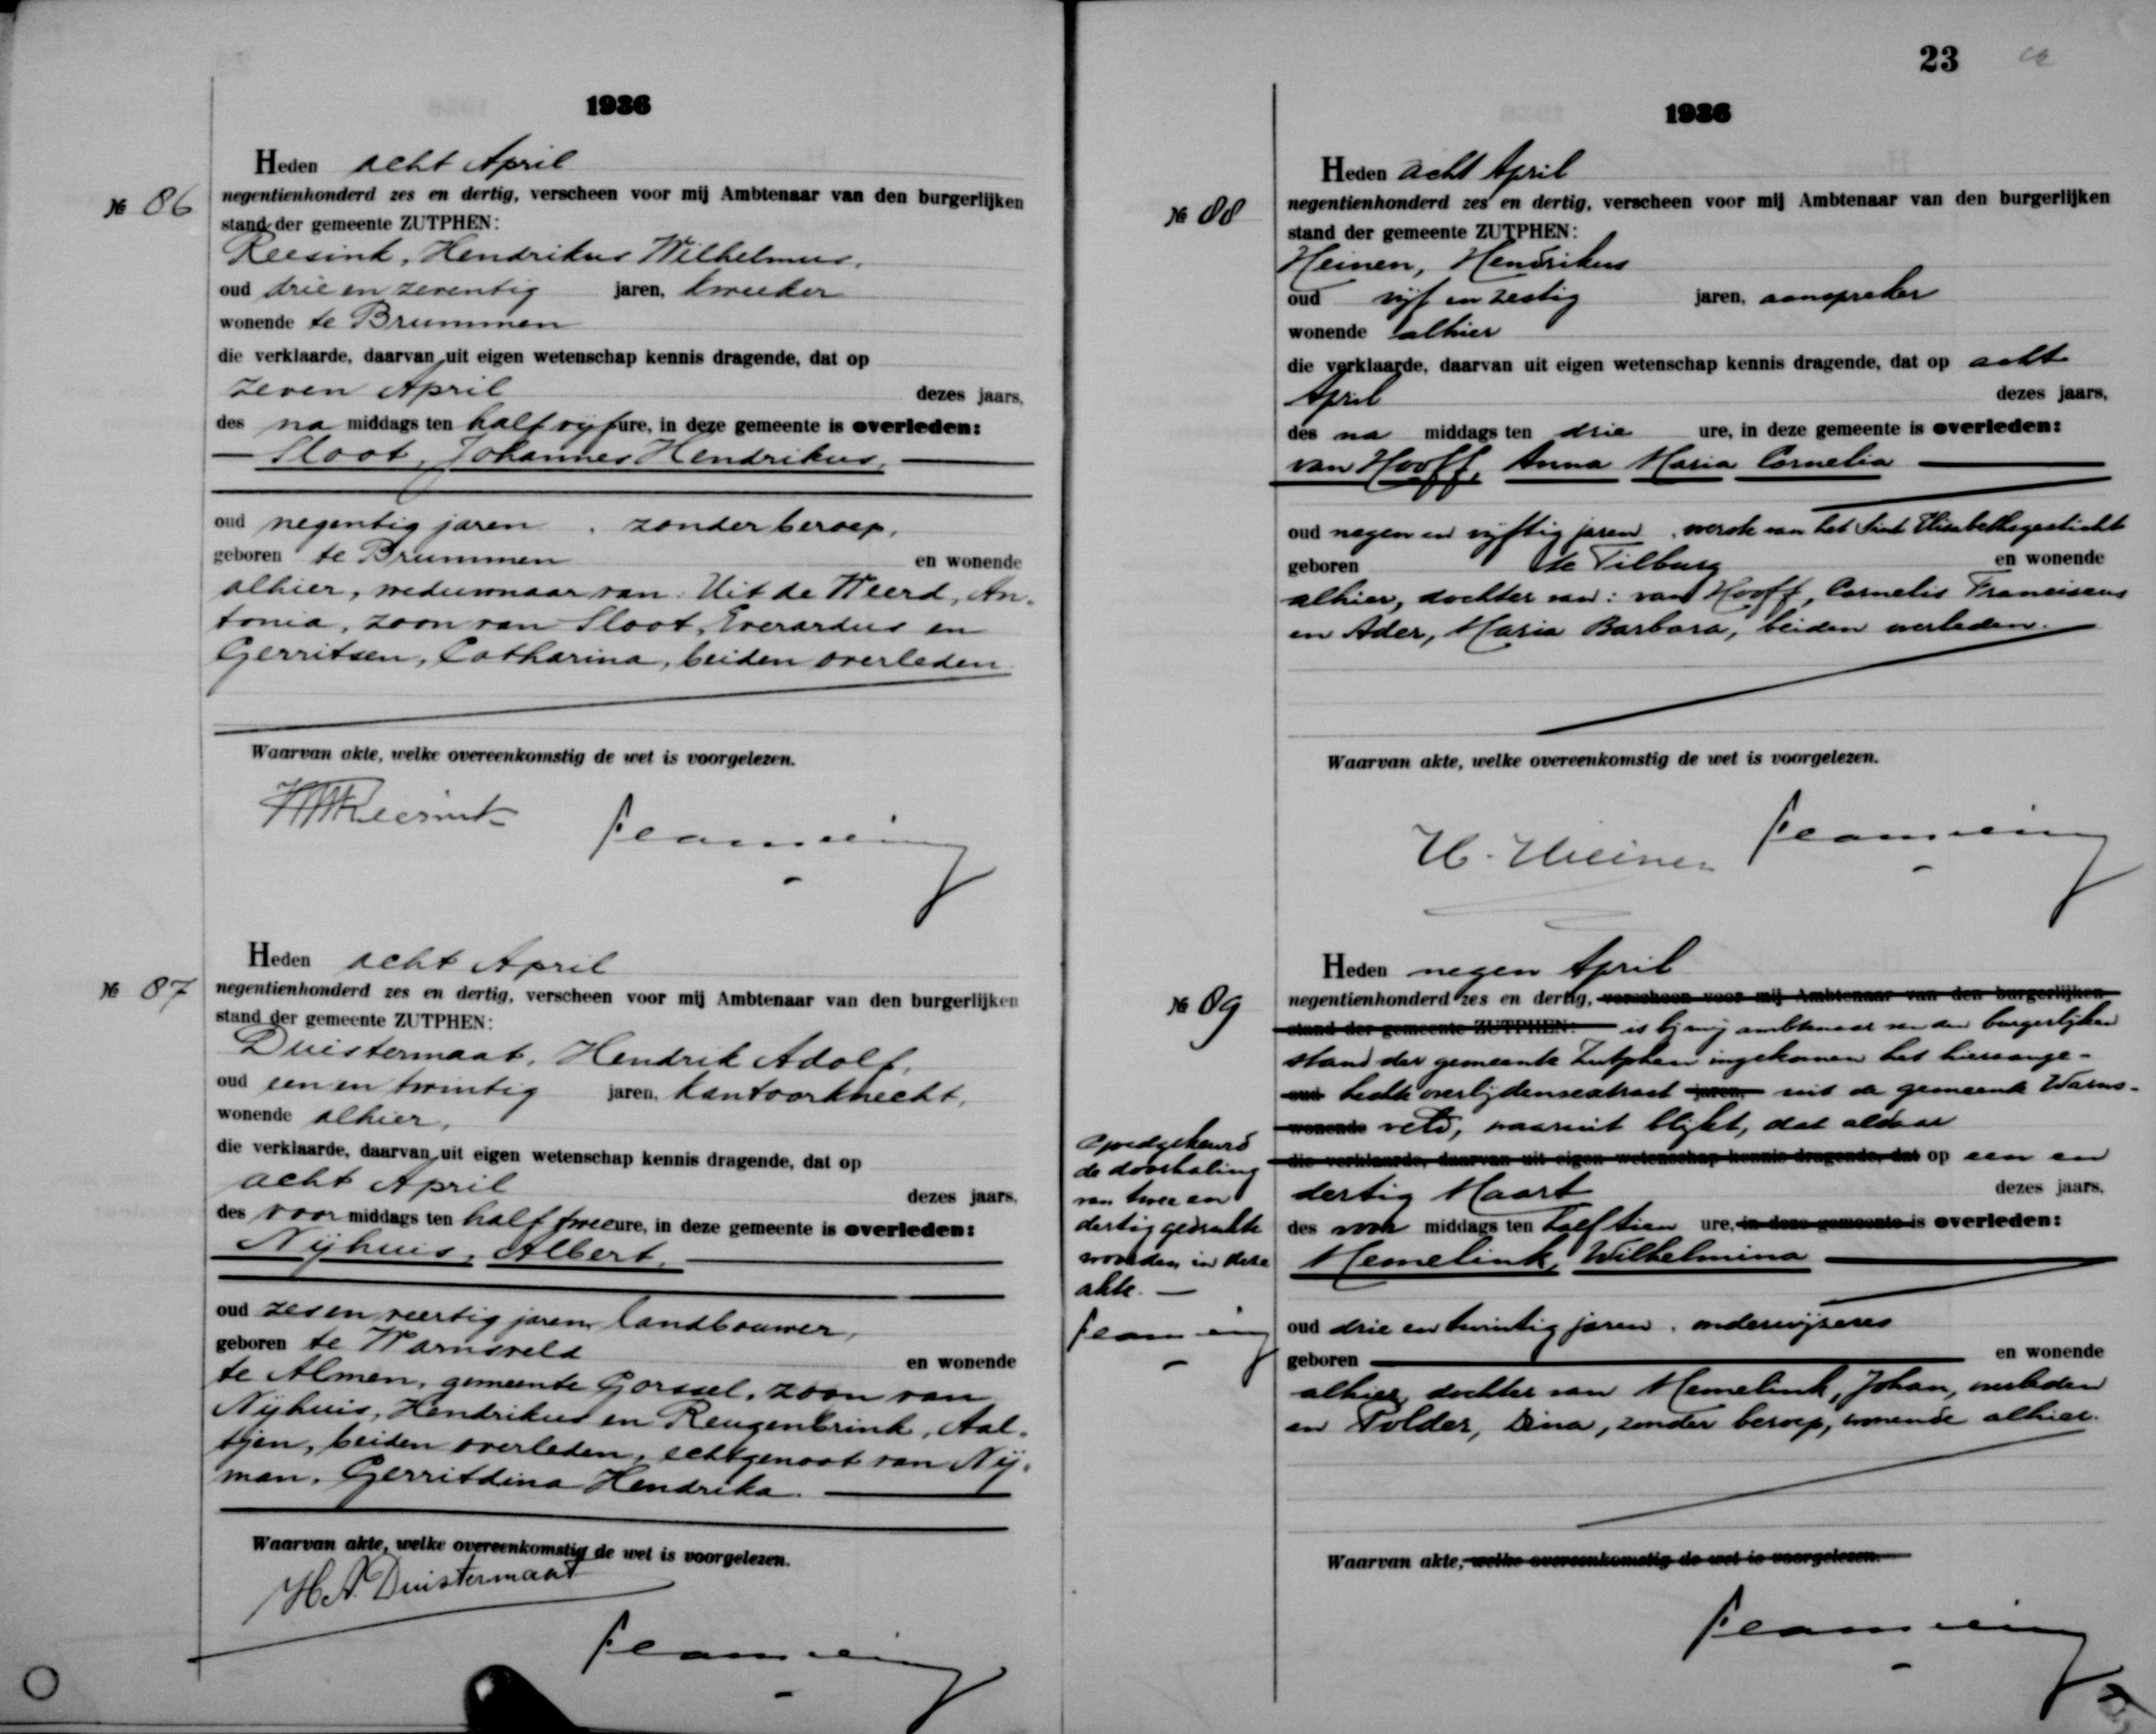 1936
Heden acht April
№ 86
negentienhonderd zes en dertig, verscheen voor mij Ambtenaar van den burgerlijken
stand der gemeente ZUTPHEN:
Reesink, Hendrikus Wilhelmus,
oud drie en zeventig jaren, kweeker
wonende te Brummen
die verklaarde, daarvan uit eigen wetenschap kennis dragende, dat op
zeven April dezes jaars,
des na middags ten half vijf ure, in deze gemeente is overleden:
Sloot, Johannes Hendrikus,
oud negentig jaren, zonder beroep,
geboren te Brummen en wonende
alhier, weduwnaar van: Uit de Weerd, An-
tonia, zoon van Sloot, Everardus en
Gerritsen, Catharina, beiden overleden
Waarvan akte, welke overeenkomstig de wet is voorgelezen.
HWReesink
Heden acht April
№ 87
negentienhonderd zes en dertig, verscheen voor mij Ambtenaar van den burgerlijken
stand der gemeente ZUTPHEN:
Duistermaat, Hendrik Adolf,
oud een en twintig jaren, kantoorknecht,
wonende alhier,
die verklaarde, daarvan uit eigen wetenschap kennis dragende, dat op
acht April dezes jaars,
des voor middags ten half twee ure, in deze gemeente is overleden:
Nijhuis, Albert,
oud zes en veertig jaren landbouwer,
geboren te Warnsveld en wonende
te Almen, gemeente Gorssel, zoon van
Nijhuis, Hendrikus en Reugenbrink, Aal-
tjen, beiden overleden, echtgenoot van Nij-
man, Gerritdina Hendrika.
Waarvan akte, welke overeenkomstig de wet is voorgelezen.
H.A. Duistermaat
23
1936
Heden acht April
№ 88
negentienhonderd zes en dertig, verscheen voor mij Ambtenaar van den burgerlijken
stand der gemeente ZUTPHEN:
Heinen, Hendrikus
oud vijf en zestig jaren, aanspreker
wonende alhier
die verklaarde, daarvan uit eigen wetenschap kennis dragende, dat op acht
April dezes jaars,
des na middags ten drie ure, in deze gemeente is overleden:
van Hooff, Anna Maria Cornelia
oud negen en vijftig jaren, van het Sint Elisabethsgesticht
geboren te Tilburg en wonende
alhier, dochter van: van Hooff, Cornelis Franciscus
en Ader, Maria Barbara, beiden overleden.
Waarvan akte, welke overeenkomstig de wet is voorgelezen.
H. Heinen
Heden negen April
№ 89
negentienhonderd zes en dertig, verscheen voor mij Ambtenaar van den burgerlijken
stand der gemeente ZUTPHEN: is bij mij ambtenaar van den burgerlijken
stand der gemeente Zutphen ingekomen het hieraange-
oud hechte overlijdensextract jaren, uit de gemeente Warns-
wonende veld, waaruit blijkt, dat aldaar
die verklaarde, daarvan uit eigen wetenschap kennis dragende, dat op een en
dertig Maart dezes jaars,
des voor middags ten half tien ure, in deze gemeente is overleden:
Memelink, Wilhelmina
oud drie en twintig jaren, onderwijzeres
geboren en wonende
alhier, dochter van Memelink, Johan, overleden
en Polder, Dina, zonder beroep, wonende alhier.
Waarvan akte, welke overeenkomstig de wet is voorgelezen.
Goedgekeurd
de doorhaling
van twee en
dertig gedrukte
woorden in deze
akte.